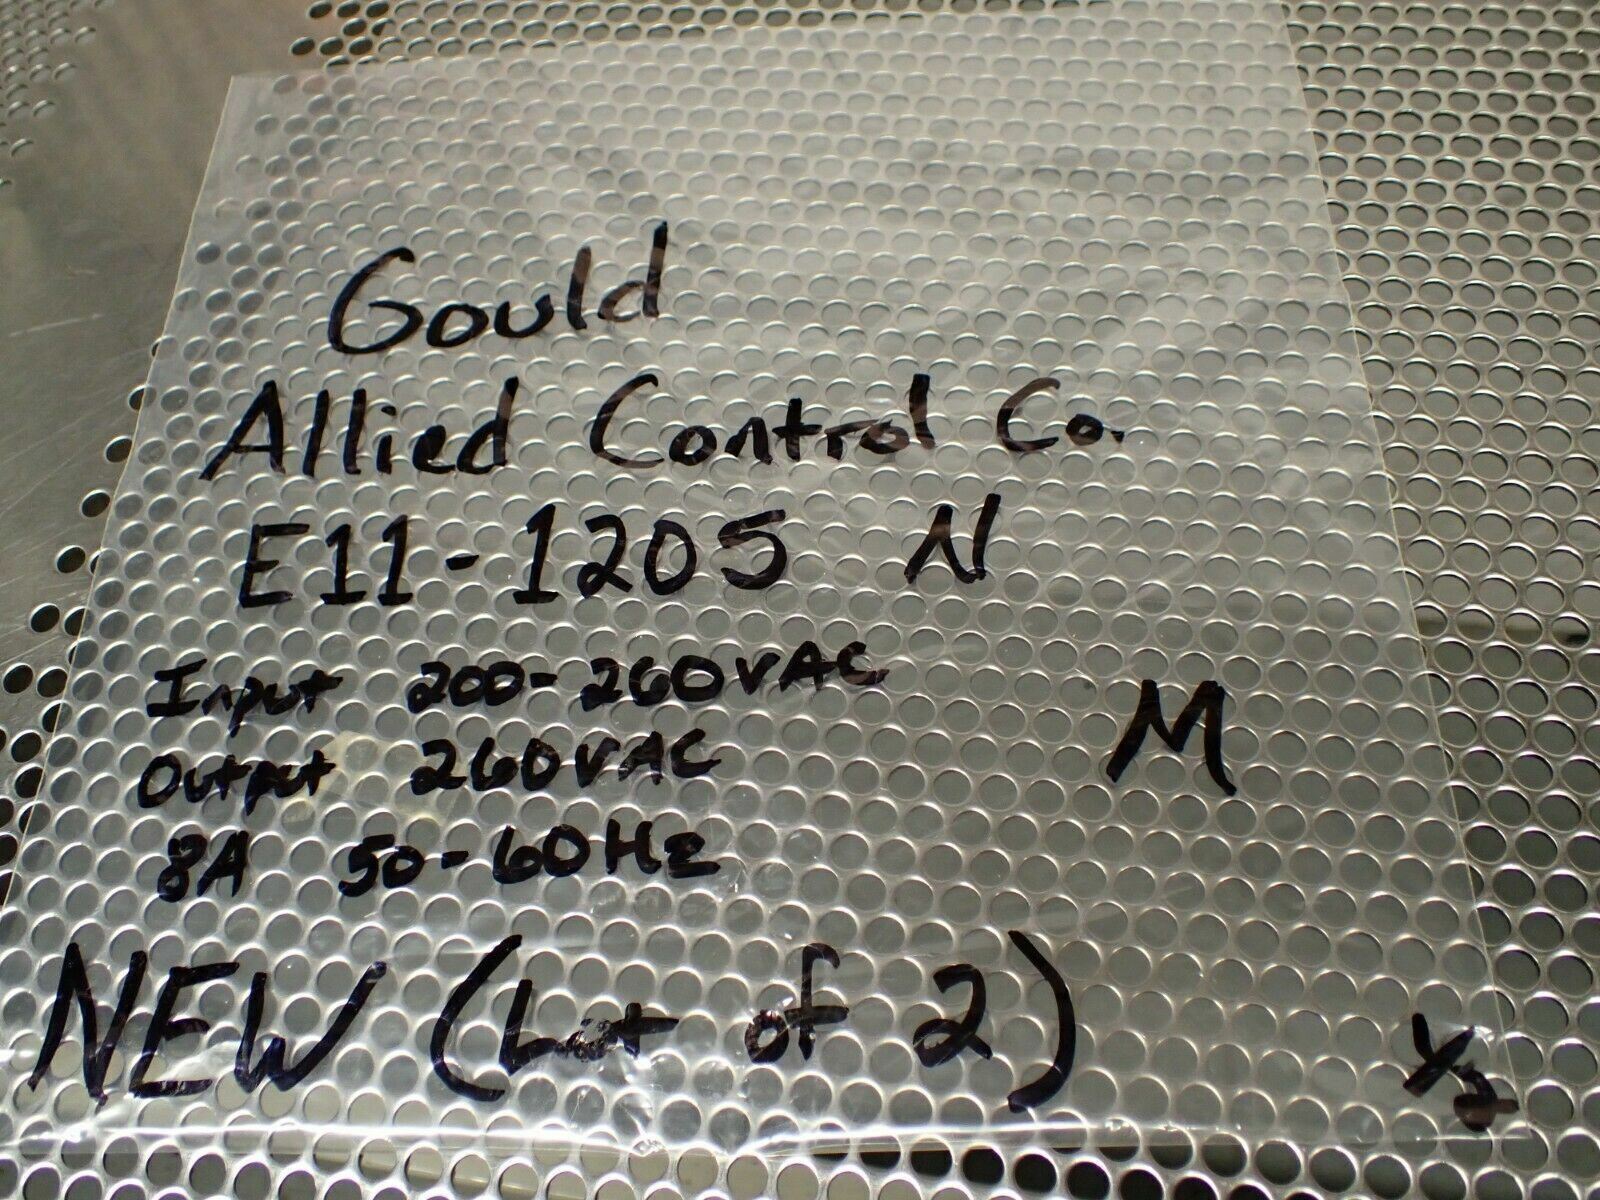 Gould
Allied Control Co.
E11-1205 N
Input 200-260VAC
Output 260VAC
M
8A 50-60Hz
NEW (Lot of 2)